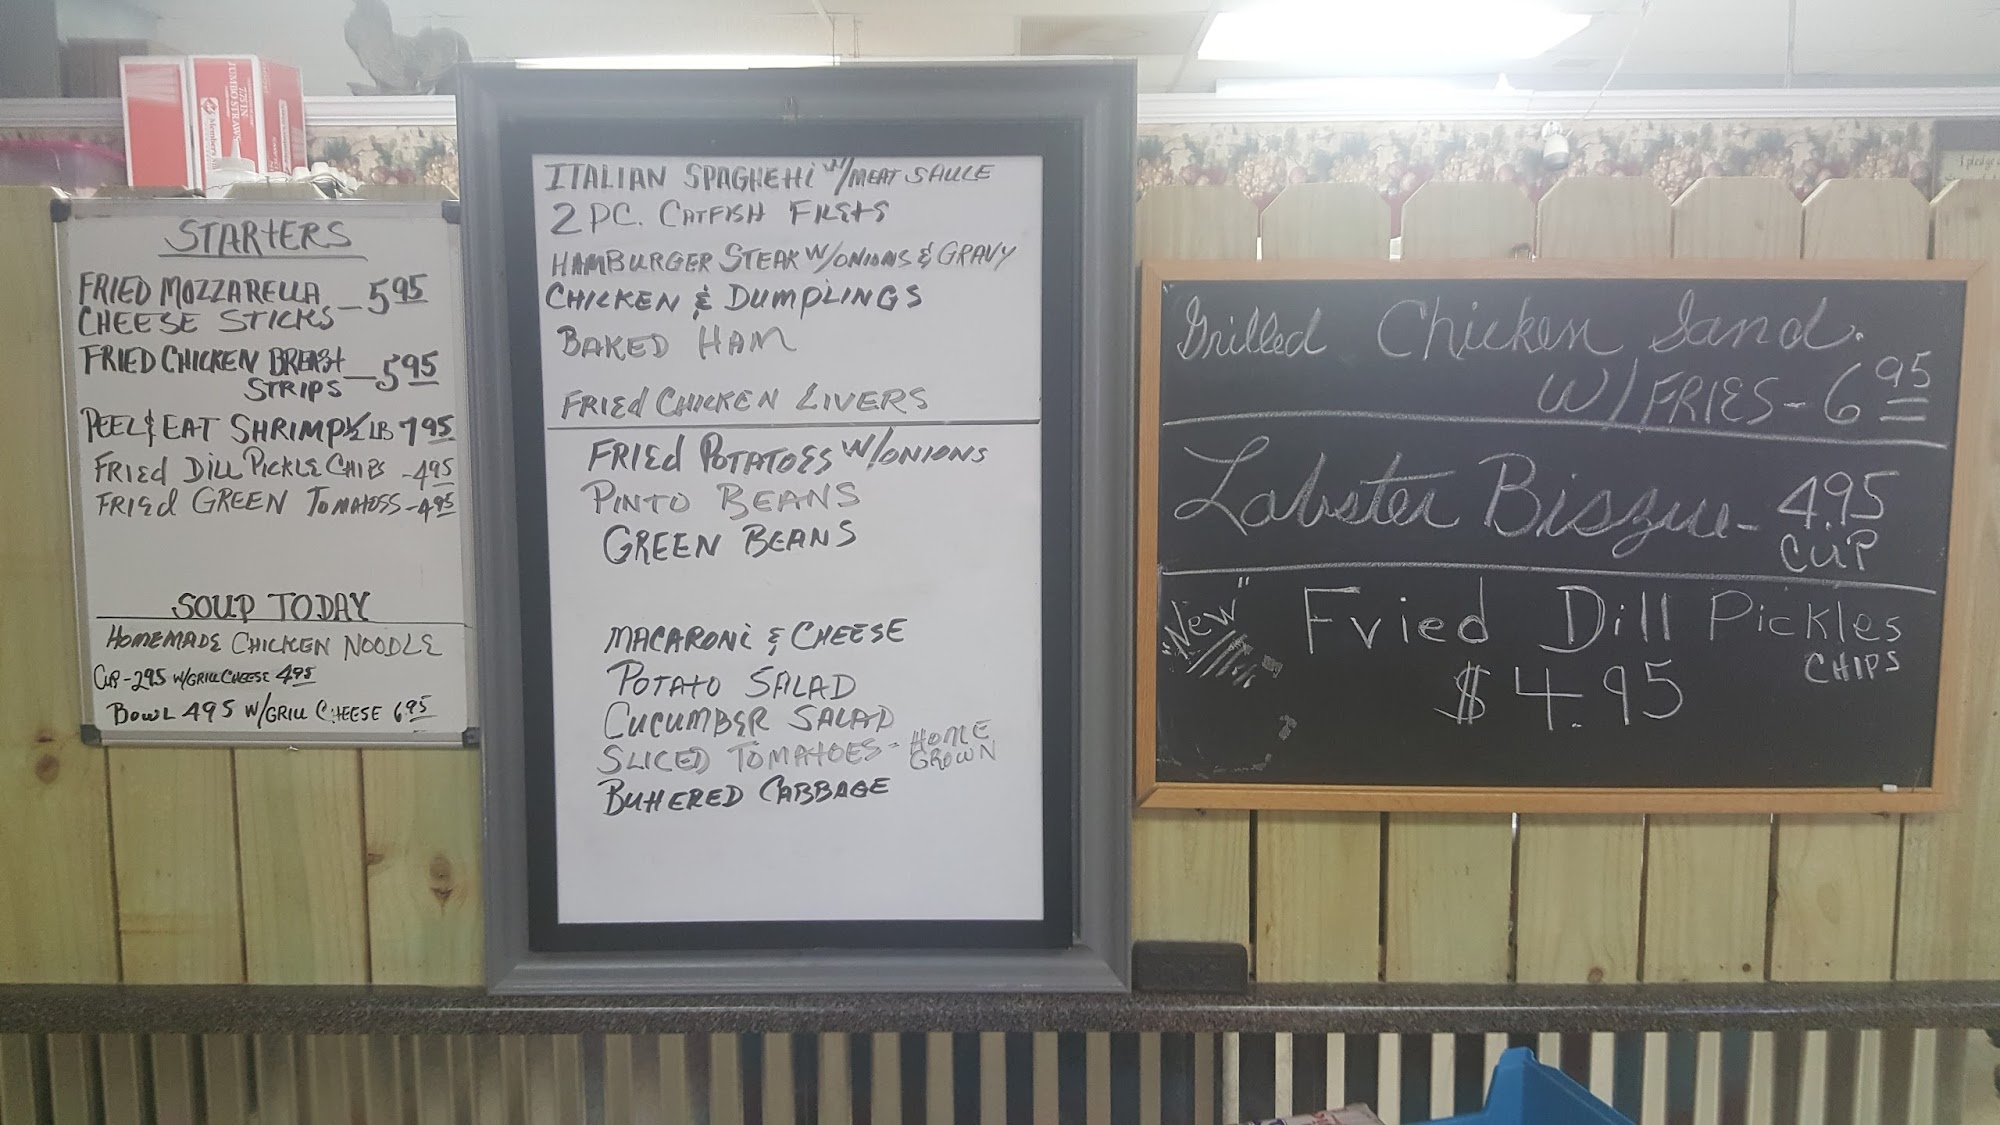 STARTERS
FRIED MOZZARELLA
CHEESE STICKS — 5 95
FRIED CHICKEN BREAST
STRIPS — 5 95
PEEL & EAT SHRIMP ½ LB 7 95
FRIED DILL PICKLE CHIPS - 4 95
FRIED GREEN TOMATOSS - 4 95
SOUP TODAY
HOMEMADE CHICKEN NOODLE
CUP - 295 W/GRILL CHEESE 4 95
BOWL 495 W/GRILL CHEESE 6 95
ITALIAN SPAGHETTI W/MEAT SAUCE
2 PC. CATFISH FILETS
HAMBURGER STEAK W/ONIONS & GRAVY
CHICKEN & DUMPLINGS
BAKED HAM
FRIED CHICKEN LIVERS
FRIED POTATOES W/ONIONS
PINTO BEANS
GREEN BEANS
MACARONI & CHEESE
POTATO SALAD
CUCUMBER SALAD
SLICED TOMATOES - HOME
GROWN
BUTTERED CABBAGE
Grilled Chicken Sand.
W/FRIES - 6 95
Lobster Biszue - 4.95
CUP
"New" Fried Dill Pickles
CHIPS
$4.95
7.75 IN
JUMBO STRAWS
I pledge